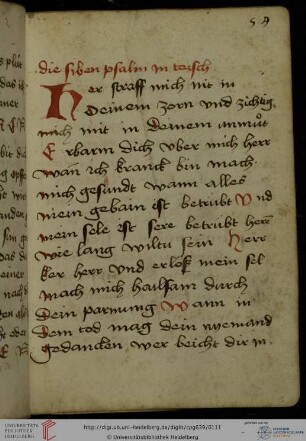 59
die siben psalm in teutsch
Her straff mich nit in
Deinem zorn und zichtig
mich nit in deinem anmuot
Erbarm dich über mich herr
wan ich kranck bin mach
mich gesundt wann alles
mein gebain ist betrübt Und
mein sele ist sere betrübt herr
wie lang wiltu sein Herr
ker herr und erlöß mein sel
mach mich hailsam durch
Dein parmung Wann in
Dem tod mag dein nyemand
gedancken wer beicht dir in
UNIVERSITÄTS-
BIBLIOTHEK
HEIDELBERG
http://digi.ub.uni-heidelberg.de/diglit/cpg639/0111
© Universitätsbibliothek Heidelberg